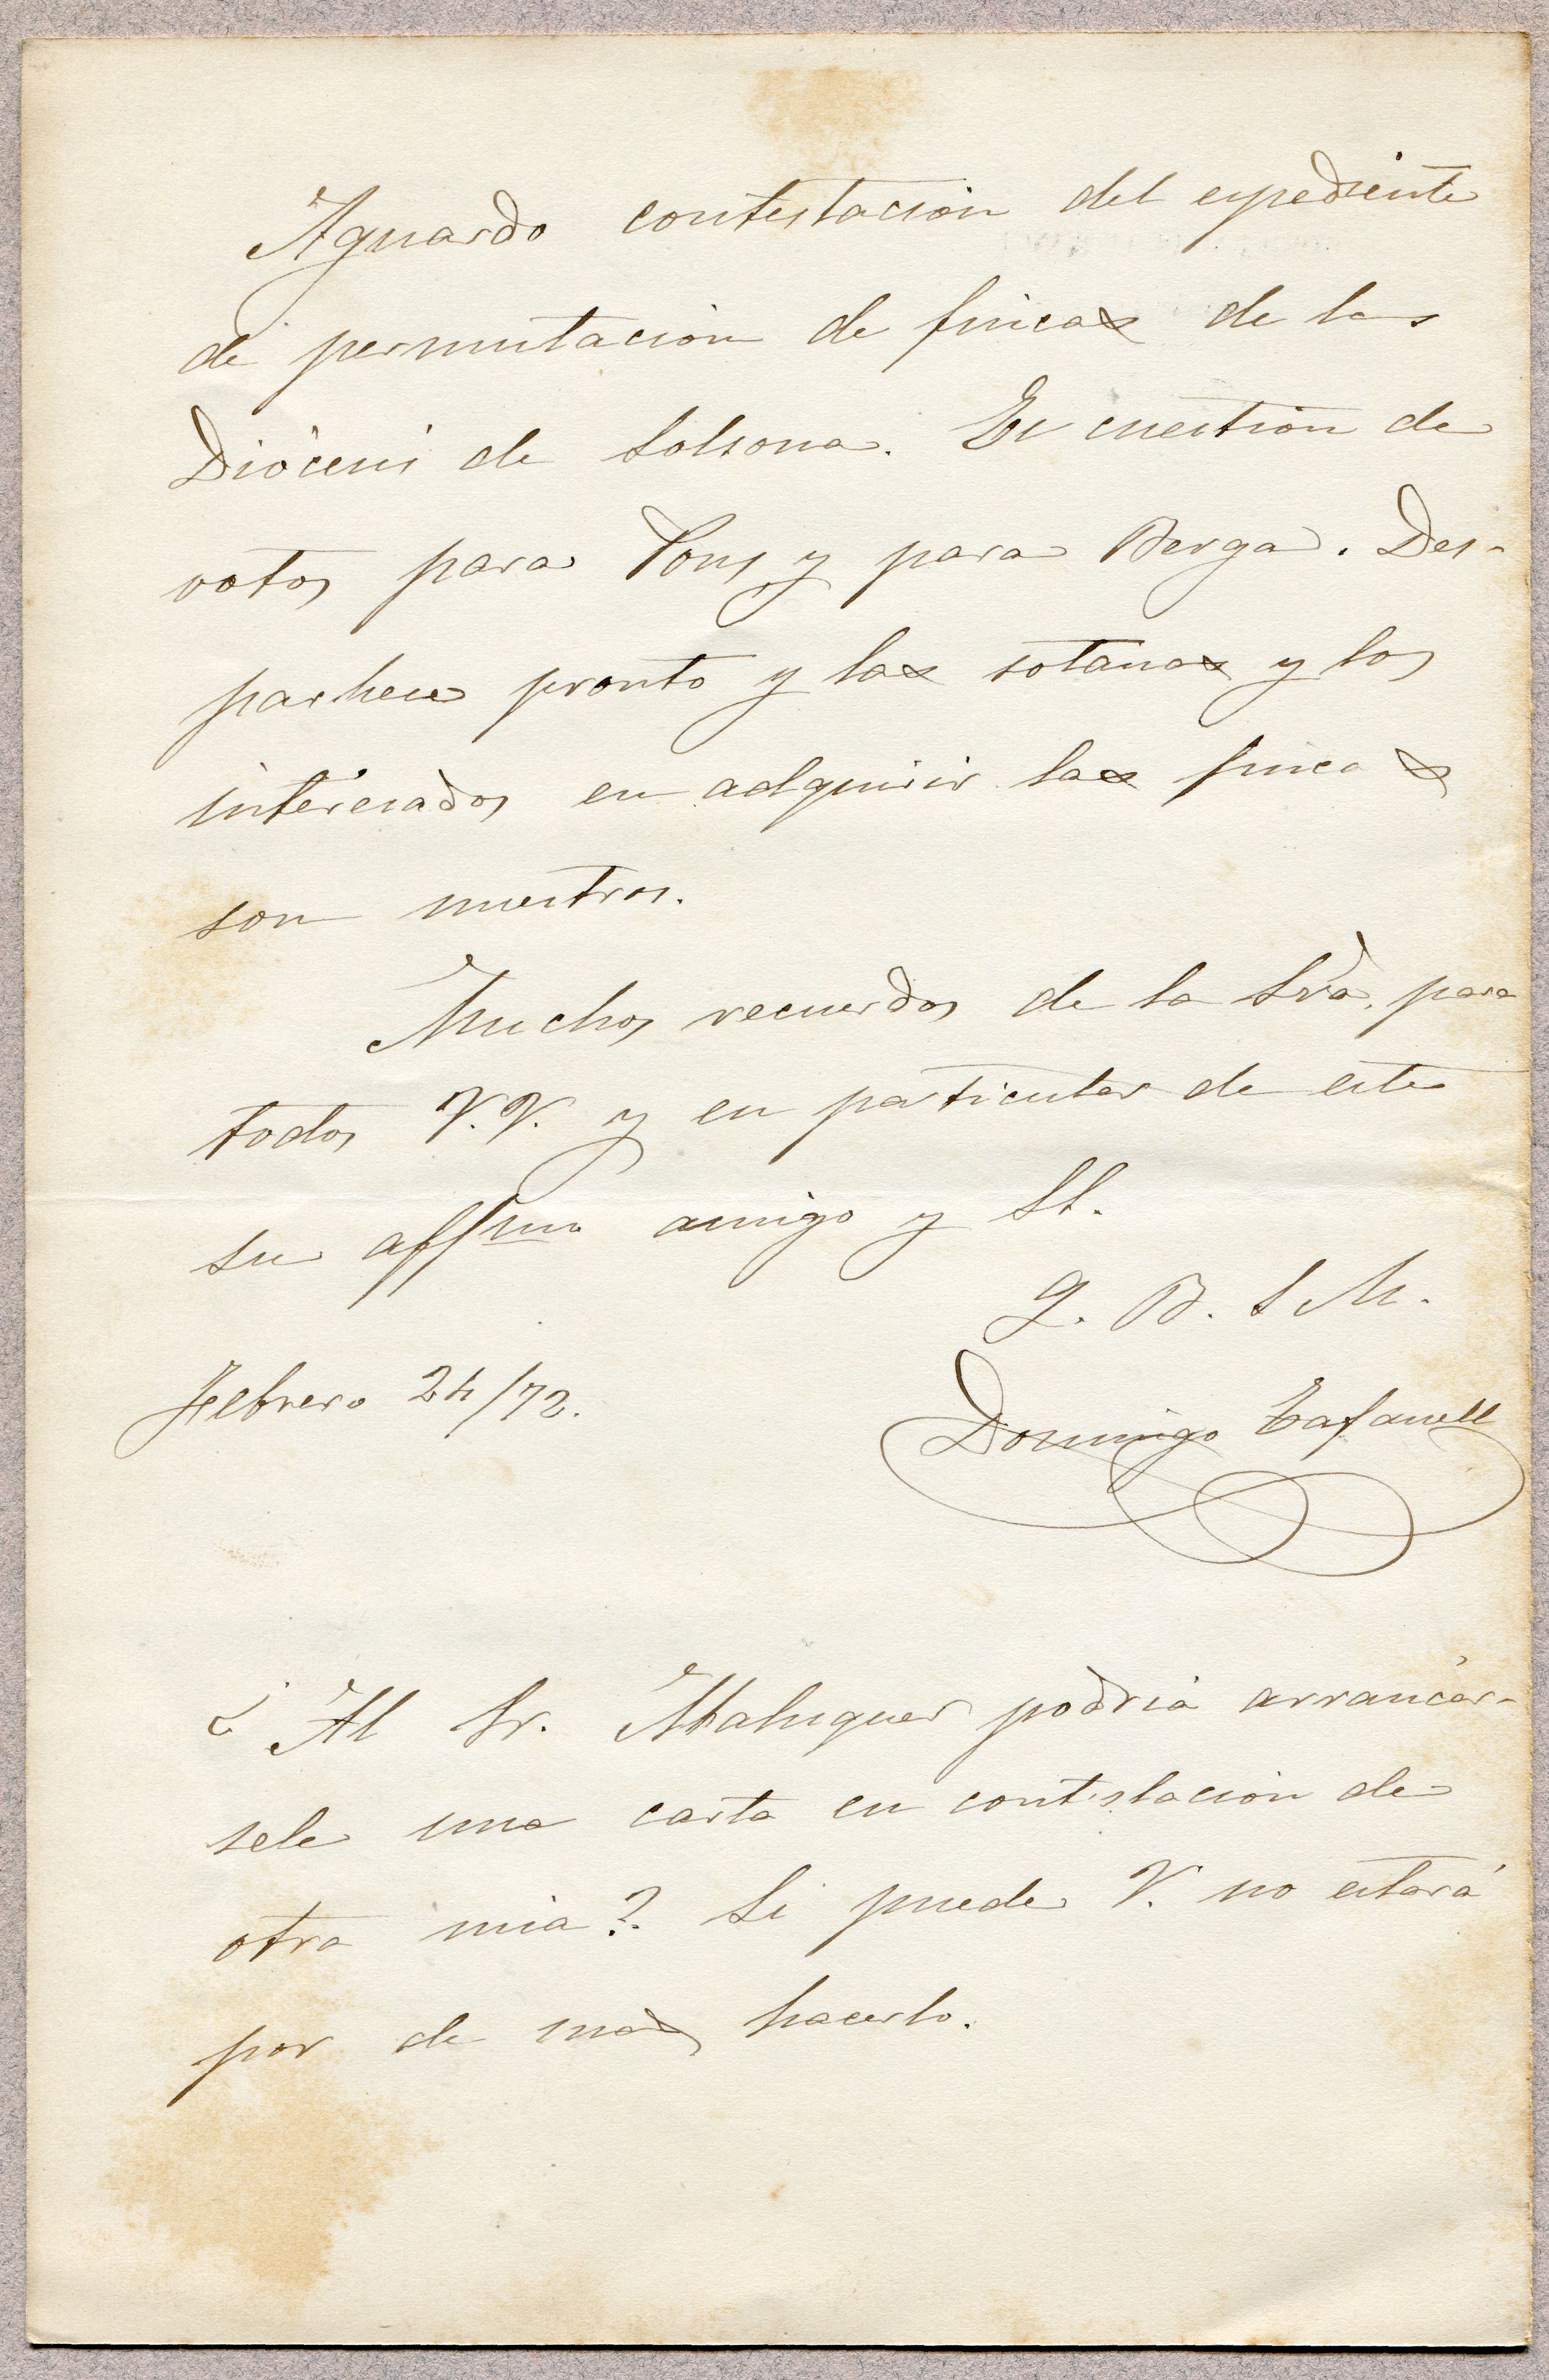 Aguardo contestacion del espediente
de permutacion de fincas de las
Diócesis de Solsona. Es cuestion de
votos para Pons y para Berga. Des-
pachese pronto y las sotanas y los
interesados en adquirir las fincas
son nuestros.
Muchos recuerdos de la Sra. para
todos V.V. y en particular de este
su affmo amigo y SS.
Q. B. S M.
Febrero 24/72.
Domingo Tafanell
¿Al Sr. Maluquer podria arrancár-
sele una carta en contestacion de
otra mia? Si puede V. no estará
por de mas hacerlo.